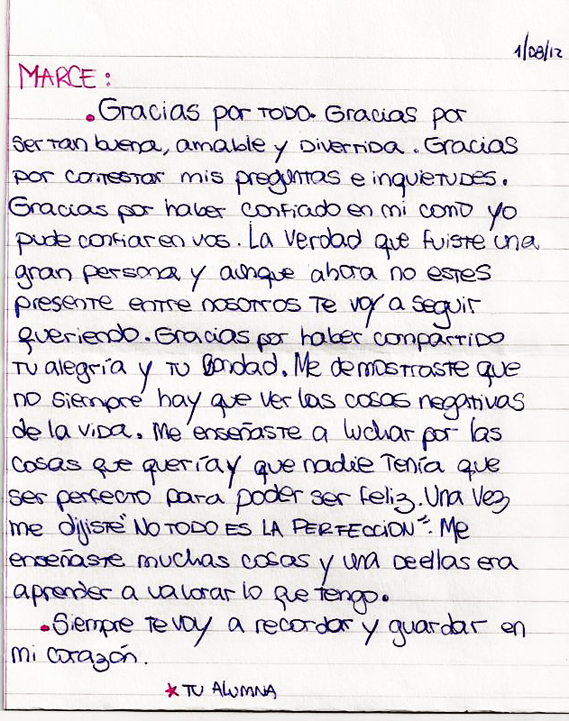 1/08/12
MARCE:
.Gracias por TODO. Gracias por
ser tan buena, amable y Divertida. Gracias
por contestar mis preguntas e inquietudes.
Gracias por haber confiado en mi como yo
pude confiar en vos. La verdad que fuiste una
gran persona y aunque ahora no estes
presente entre nosotros te voy a seguir
queriendo. Gracias por haber compartido
tu alegría y tu Bondad. Me demostraste que
no siempre hay que ver las cosas negativas
de la vida. Me enseñaste a luchar por las
cosas que quería y que nadie tenía que
ser perfecto para poder ser feliz. Una vez
me dijiste "NO TODO ES LA PERFECCION". Me
enseñaste muchas cosas y una de ellas era
aprender a valorar lo que tengo.
.Siempre te voy a recordar y guardar en
mi corazón.
* TU ALUMNA